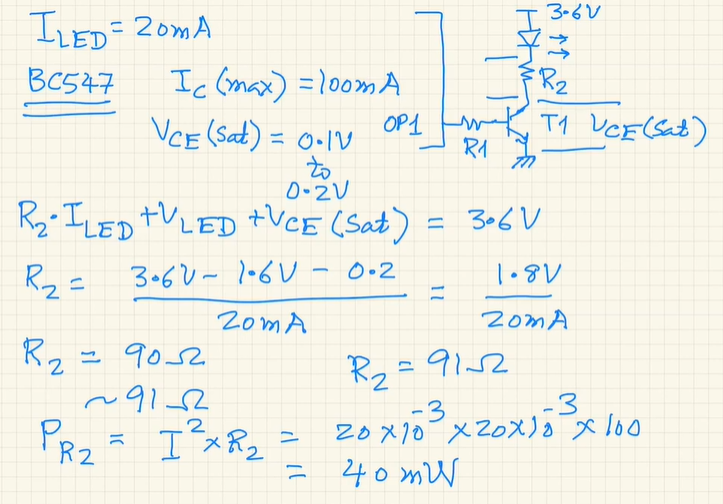 I_LED = 20mA
BC547 I_C (max) = 100mA
V_CE (sat) = 0.1V
to
0.2V
3.6V
R2
OP1
R1
T1 V_CE (sat)
R2 · I_LED + V_LED + V_CE (sat) = 3.6V
R2 = 3.6V - 1.6V - 0.2 / 20mA = 1.8V / 20mA
R2 = 90Ω R2 = 91Ω
~91Ω
P_R2 = I² × R2 = 20 × 10⁻³ × 20 × 10⁻³ × 100
= 40 mW